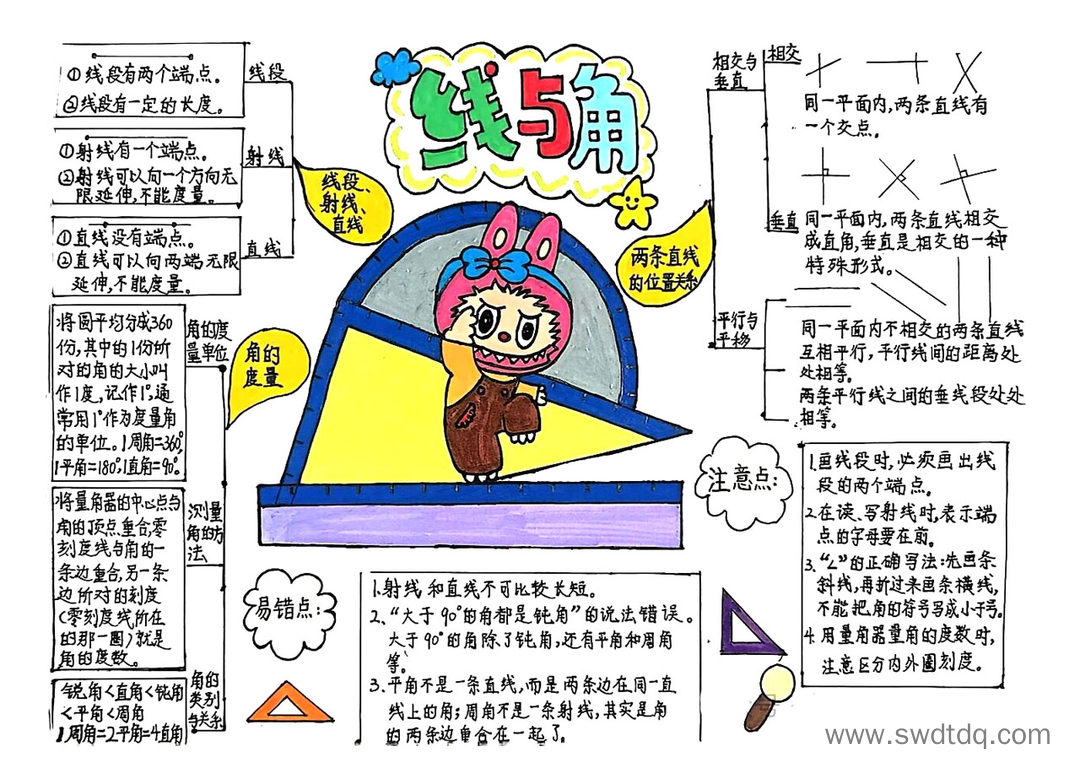 线与角
线段、
射线、
直线
线段
①线段有两个端点。
②线段有一定的长度。
射线
①射线有一个端点。
②射线可以向一个方向无
限延伸,不能度量。
直线
①直线没有端点。
②直线可以向两端无限
延伸,不能度量。
角的
度量
角的度
量单位
将圆平均分成360
份,其中的1份所
对的角的大小叫
作1度,记作1°,通
常用1°作为度量角
的单位。1周角=360°,
1平角=180°,1直角=90°。
测量
角的方
法
将量角器的中心点与
角的顶点重合,零
刻度线与角的一
条边重合,另一条
边所对的刻度
(零刻度线所在
的那一圈)就是
角的度数。
角的
类别
与关系
锐角<直角<钝角
<平角<周角
1周角=2平角=4直角
两条直线
的位置关系
相交与
垂直
相交
同一平面内,两条直线有
一个交点。
垂直
同一平面内,两条直线相交
成直角,垂直是相交的一种
特殊形式。
平行与
平移
同一平面内不相交的两条直线
互相平行,平行线间的距离处
处相等。
两条平行线之间的垂线段处处
相等。
注意点:
1.画线段时,必须画出线
段的两个端点。
2.在读、写射线时,表示端
点的字母要在前。
3.“∠”的正确写法:先画条
斜线,再折过来画条横线,
不能把角的符号写成小于号。
4.用量角器量角的度数时,
注意区分内外圈刻度。
易错点:
1.射线和直线不可比较长短。
2.“大于90°的角都是钝角”的说法错误。
大于90°的角除了钝角,还有平角和周角
等。
3.平角不是一条直线,而是两条边在同一直
线上的角;周角不是一条射线,其实是角
的两条边重合在一起了。
www.swdtdq.com